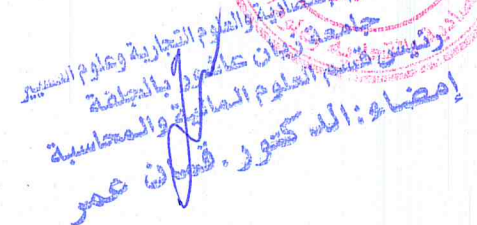 والعلوم التجارية وعلوم التسيير
جامعة زيان عاشور بالجلفة
رئيس قسم العلوم المالية والمحاسبة
إمضاء: الدكتور. قمان عمر